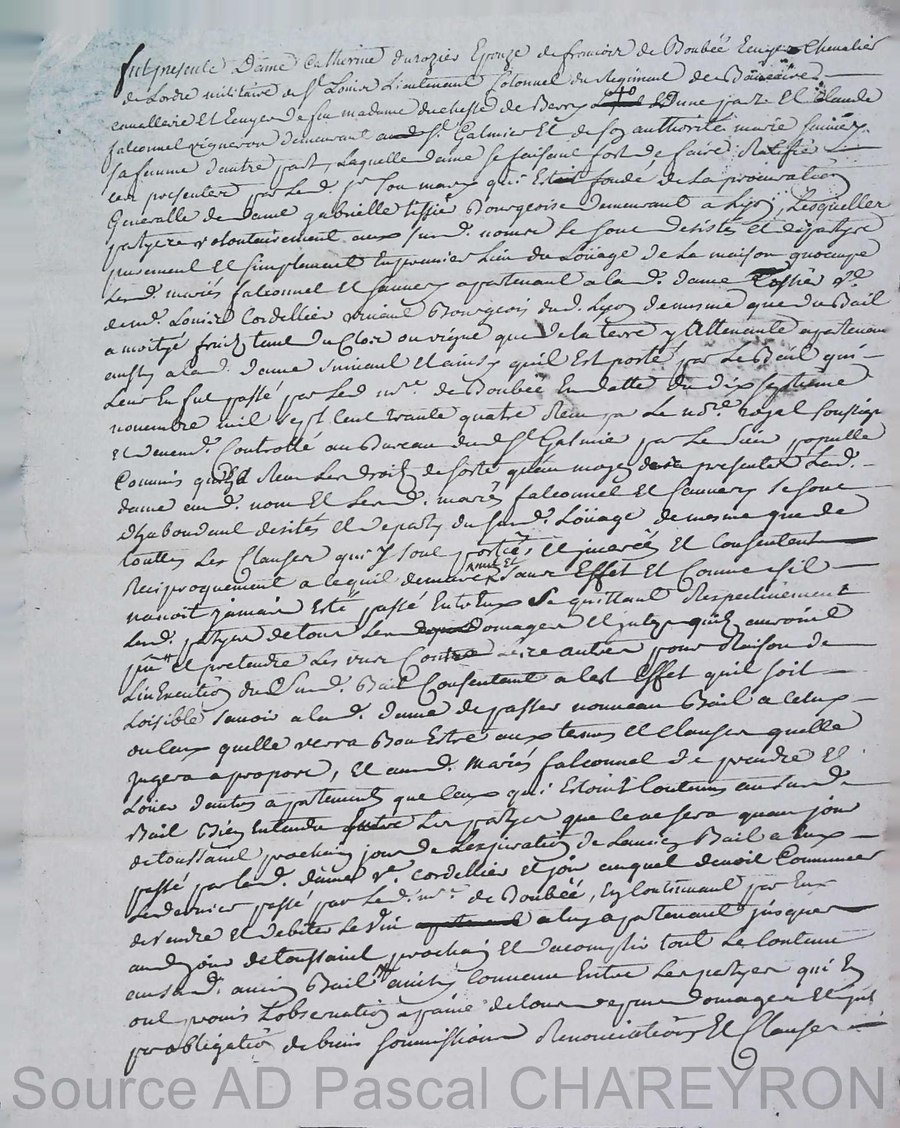 fut presente Dame Catherine durozier Epouze de francois de Boubée Ecuyer Chevalier
de Lordre militaire de St Louis Lieutenant Colonnel du Regiment de
cavallerie Et Ecuyer de feu madame duchesse de Berry Dune part Et Claude
falconnel vigneron demeurant a St Galmier Et de son authorité marie
sa femme dautre part, Laquelle dame se faisant fort de faire Ratifie
ces presentes par Led. sr son mary qui Est fondé de La procuration
Generalle de dame gabrielle tissier Bourgeoise demeurant a Lyon, Lesquelles
partyes volontairement aux susd. noms se sont desistés et departys
purement Et simplement En premier Lieu du Loüage de La maison quoccupe
Lesd. mariés falconnel Et apartenant a lad. dame tissier ve.
de md. Louis Cordellier vivant Bourgeois dud. Lyon de mesme que du Bail
a moitye fruitz tant du Clos ou vigne que de la terre y Attenante apartenant
aussy a lad. dame suivant Et ainsy quil Est porté par Le Bail qui
Leur En fut passé par Led. de Boubée En datte du dix septieme
novembre mil sept Cent trante quatre Receu par Le nore royal soussigné
Et Controllé au Bureau dud. St Galmie par Le Sieur
Commis quy a Receu Les droitz de sorte quau moyen de ces presentes Lad.
dame aud. nom Et Lesd. mariés falconnel Et se sont
dhabondant desistés Et departys du susd. Loüage de mesme que de
touttes Les Clauses qui y sont portées et inserées Et Consentent
Reciproquement a ce quil demeure Annul Et sans Effet Et Comme sil
navoit jamais Esté passé Entreux se quittant Respectivement
Lesd. partyes de tous Lesd. Domages Et quilz auroient
pu Et pretendre Les uns Contre Les autres pour Raison de
LinExecution dud. susd. Bail Consentant a cet Effet quil soit
Loisible savoir a lad. dame de passer nouveau Bail a celux
ou ceux quelle verra Bon Estre aux termes Et Clauses quelle
jugera a propore, Et aud. Mariés falconnel de prendre Et
Louer dautres apartements que Ceux qui Estoint Contenus au susd.
Bail Bien Entendu Entre Les partyes que ce ne sera quau jour
de toussaint prochain jour de Lexpiration de Lancien Bail a Eux
passé par Lad. dame ve. Cordellier Et jour auquel devoit Commencer
Le dernier passé par Le d. de Boubée, En Continuant par Eux
de vendre Et debiter Le vin a luy apartenant jusques
aud. jour de toussaint prochain Et dacomplir tout Le Contenu
au susd. ancien Bail ainsy Convenu Entre Les partyes qui En
ont promis Lobservation a paine de tous depens domages Et
par obligation de biens soumissions Renonciations Et Clauses
Source AD Pascal CHAREYRON